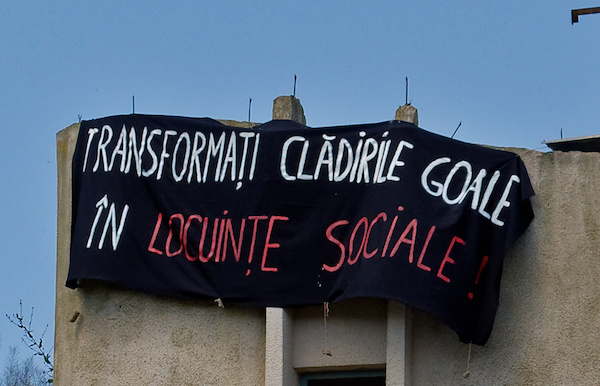 TRANSFORMAȚI CLĂDIRILE GOALE
ÎN LOCUINȚE SOCIALE!